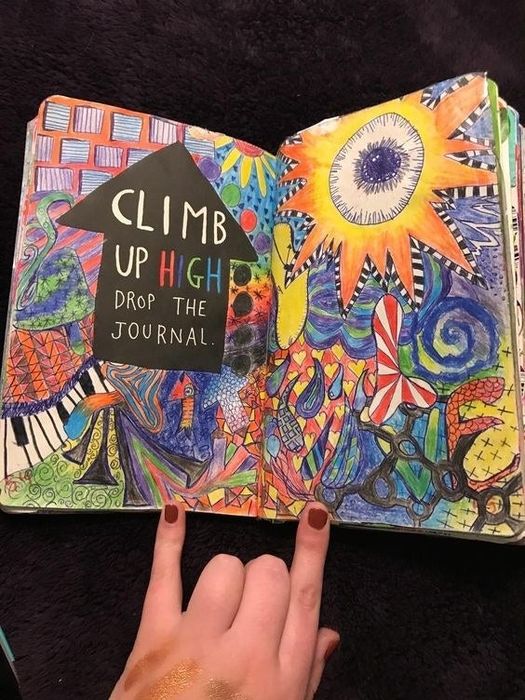 CLIMB
UP HIGH
DROP THE
JOURNAL.